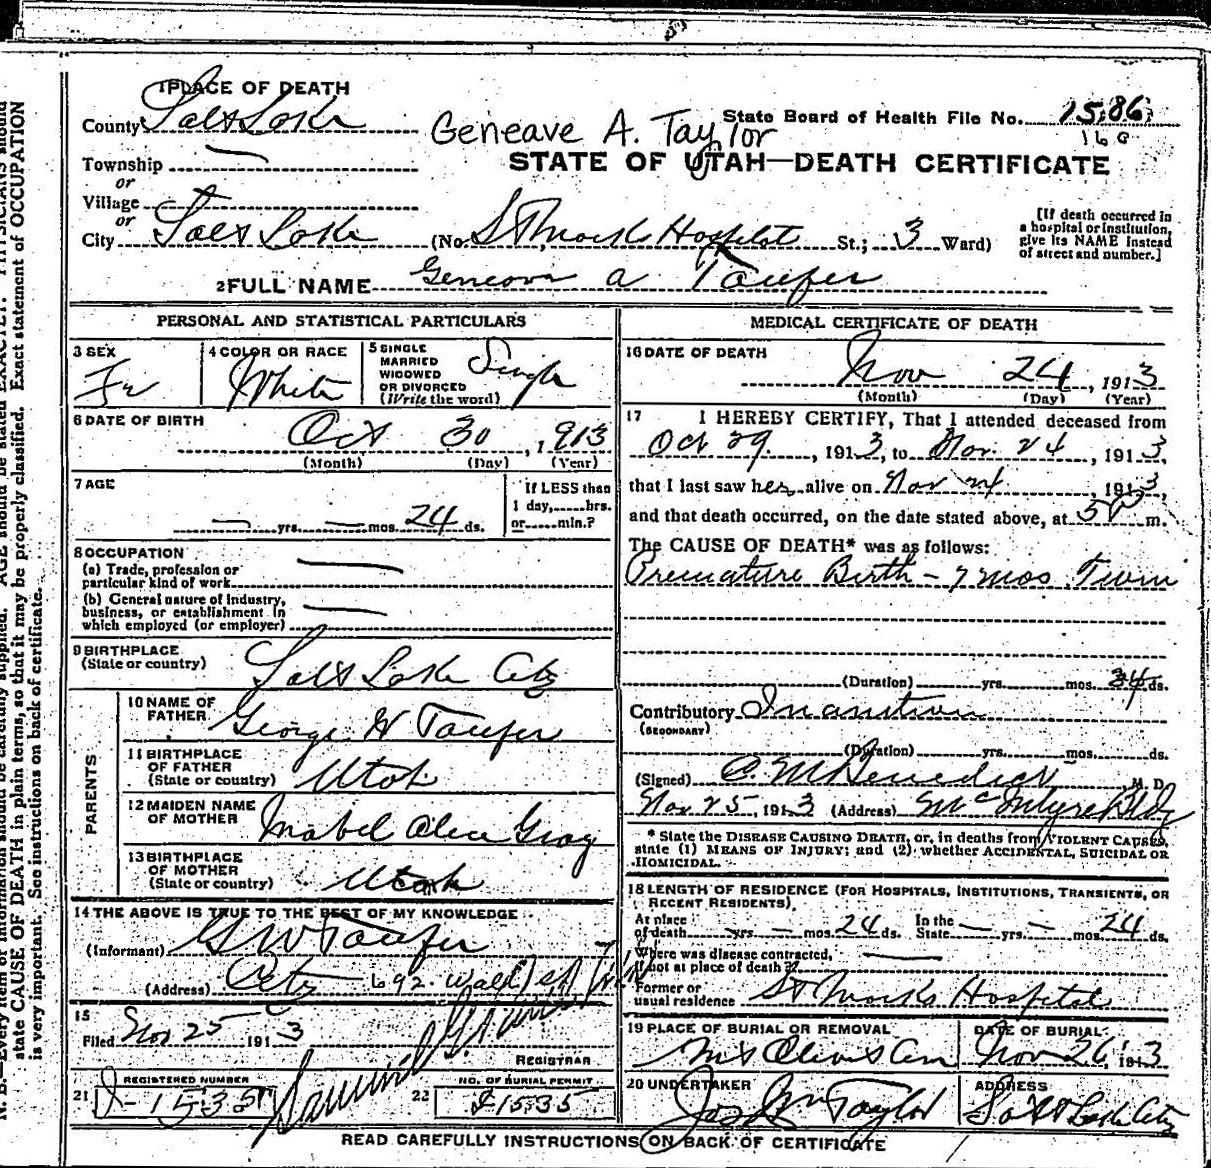 1 PLACE OF DEATH
County Salt Lake
Geneave A. Taylor
State Board of Health File No. 1586
160
Township —
or
STATE OF UTAH—DEATH CERTIFICATE
Village
or
City Salt Lake (No. St Marks Hospital St.; 3 Ward)
[If death occurred in
a hospital or institution,
give its NAME instead
of street and number.]
2 FULL NAME Geneova A Taufer
PERSONAL AND STATISTICAL PARTICULARS
3 SEX
Fe
4 COLOR OR RACE
White
5 SINGLE
MARRIED
WIDOWED
OR DIVORCED
(Write the word)
Single
6 DATE OF BIRTH
Oct 30, 1913
(Month) (Day) (Year)
7 AGE
— yrs. — mos. 24 ds.
If LESS than
1 day,......hrs.
or......min.?
8 OCCUPATION
(a) Trade, profession or
particular kind of work —
(b) General nature of Industry,
business, or establishment in
which employed (or employer) —
9 BIRTHPLACE
(State or country) Salt Lake City
PARENTS
10 NAME OF
FATHER George W Taufer
11 BIRTHPLACE
OF FATHER
(State or country) Utah
12 MAIDEN NAME
OF MOTHER Mabel Alice Gray
13 BIRTHPLACE
OF MOTHER
(State or country) Utah
14 THE ABOVE IS TRUE TO THE BEST OF MY KNOWLEDGE
(Informant) G W Taufer
(Address) City 692
15
Filed Nov 25 1913
REGISTRAR
21 REGISTERED NUMBER
1535
22 NO. OF BURIAL PERMIT
1535
MEDICAL CERTIFICATE OF DEATH
16 DATE OF DEATH
Nov 24, 1913
(Month) (Day) (Year)
17 I HEREBY CERTIFY, That I attended deceased from
Oct 29, 1913, to Nov. 24, 1913,
that I last saw her alive on Nov 24, 1913,
and that death occurred, on the date stated above, at 5 P m.
The CAUSE OF DEATH* was as follows:
Premature Birth – 7 mos. Twin
(Duration) yrs. mos. 24 ds.
Contributory Inanition
(SECONDARY)
(Duration) yrs. mos. ds.
(Signed) C. M Benedict M. D.
Nov 25, 1913 (Address) McIntyre Bldg
* State the DISEASE CAUSING DEATH, or, in deaths from VIOLENT CAUSES,
state (1) MEANS OF INJURY; and (2) whether ACCIDENTAL, SUICIDAL OR
HOMICIDAL.
18 LENGTH OF RESIDENCE (FOR HOSPITALS, INSTITUTIONS, TRANSIENTS, OR
RECENT RESIDENTS).
At place
of death — yrs. — mos. 24 ds. In the
State — yrs. — mos. 24 ds.
Where was disease contracted,
If not at place of death? —
Former or
usual residence St Marks Hospital
19 PLACE OF BURIAL OR REMOVAL
Mt Olivet Cem
DATE OF BURIAL
Nov 26, 1913
20 UNDERTAKER
Jos Wm Taylor
ADDRESS
Salt Lake City
READ CAREFULLY INSTRUCTIONS ON BACK OF CERTIFICATE
state CAUSE OF DEATH in plain terms, so that it may be properly classified. Exact statement of OCCUPATION
is very important. See instructions on back of certificate.